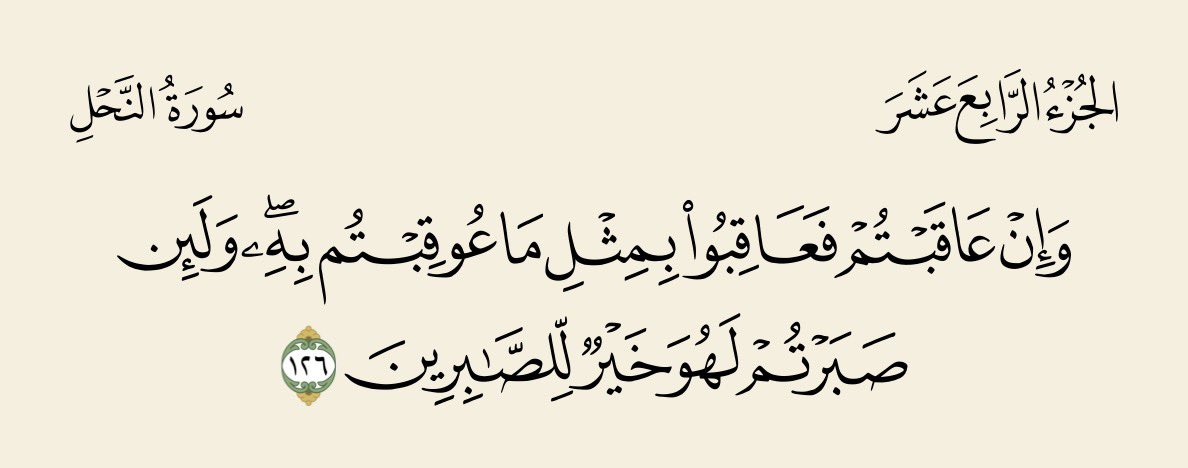 الجُزْءُ الرَّابِعَ عَشَرَ
سُورَةُ النَّحْلِ
وَإِنْ عَاقَبْتُمْ فَعَاقِبُوا۟ بِمِثْلِ مَا عُوقِبْتُم بِهِۦۖ وَلَئِن
صَبَرْتُمْ لَهُوَ خَيْرٌ لِّلصَّـٰبِرِينَ ١٢٦